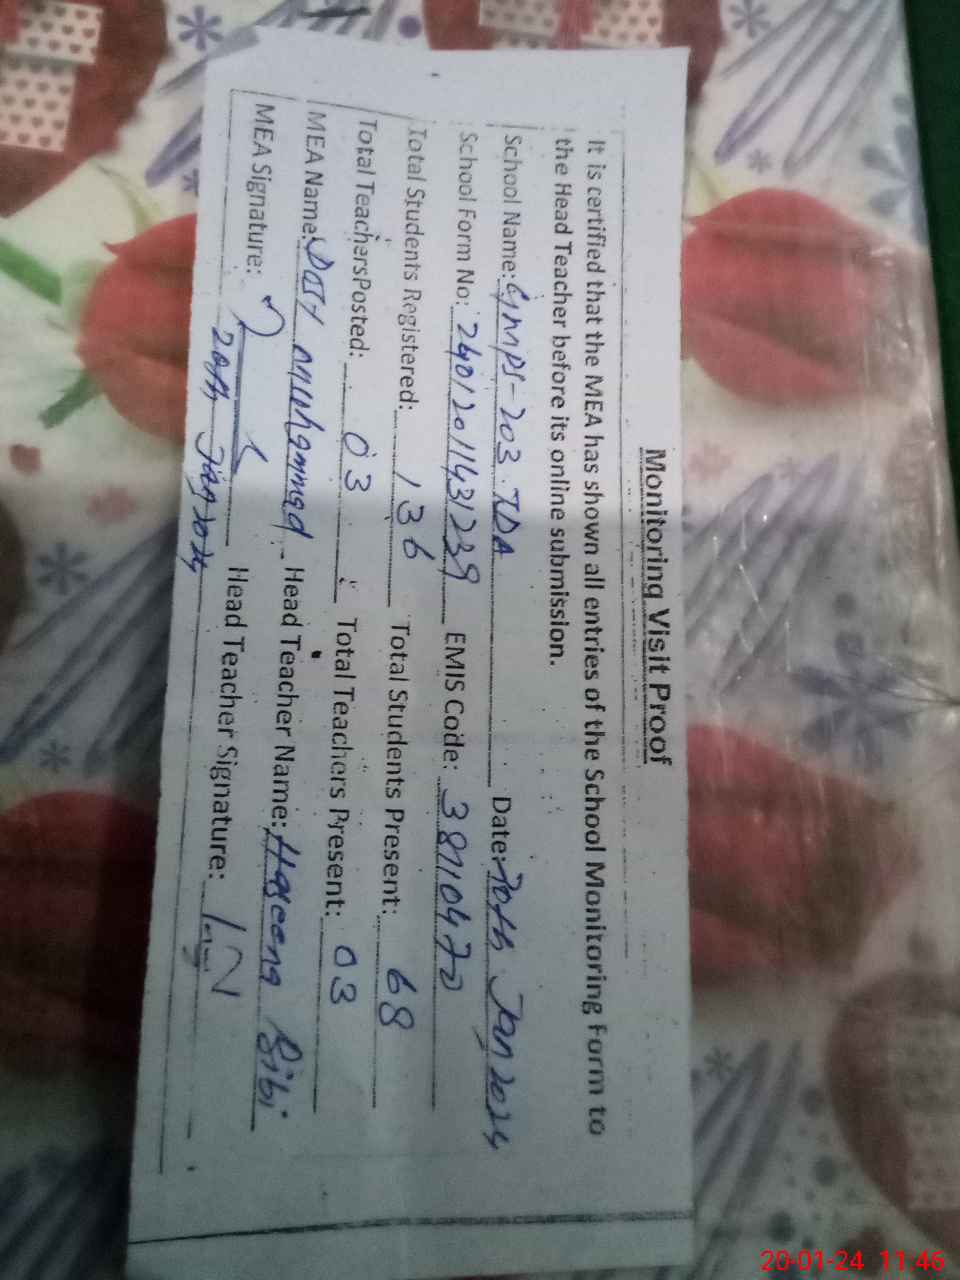 Monitoring Visit Proof
It is certified that the MEA has shown all entries of the School Monitoring Form to
the Head Teacher before its online submission.
School Name: GMPS-203 TDA Date: 20th Jan 2024
School Form No: 24012011431239 EMIS Code: 38710470
Total Students Registered: 136 Total Students Present: 68
Total Teachers Posted: 03 Total Teachers Present: 03
MEA Name: Muhammad Head Teacher Name: Haseena Bibi
MEA Signature: Head Teacher Signature:
20th Jan 2024
20-01-24 11:46